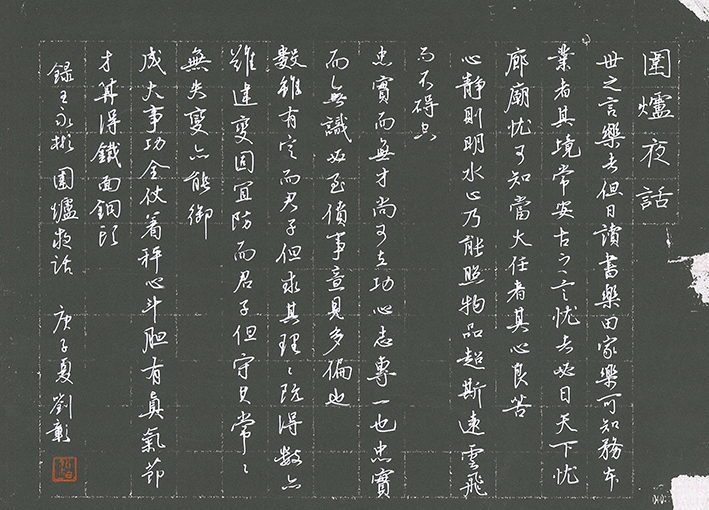 圍爐夜話
世之言樂者但曰讀書樂田家樂可知務本
業者其境常安古之言忧者必曰天下忧
廊廟忧可知當大任者其心良苦
心靜則明水止乃能照物品超斯遠雲飛
而不碍空
忠實而無才尚可立功心志專一也忠實
而無識必至僨事意見多偏也
數雖有定而君子但求其理々既得數亦
難違變固宜防而君子但守其常々
無失變亦能御
成大事功全仗着秤心斗胆有真氣節
才算得鐵面銅頭
錄王永彬圍爐夜話 庚子夏 劉彰